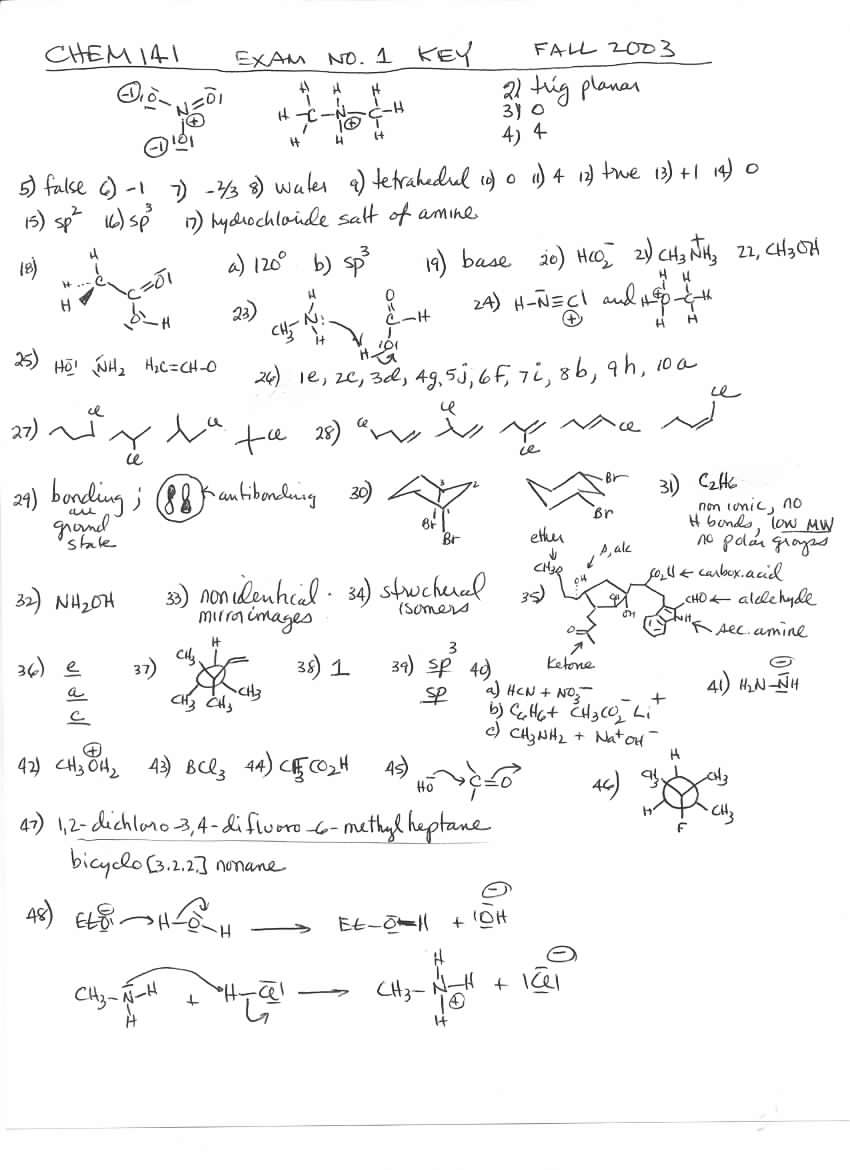 CHEM 141 EXAM NO. 1 KEY FALL 2003
2) trig planar
3) 0
4) 4
5) false 6) -1 7) -2/3 8) water 9) tetrahedral 10) 0 11) 4 12) true 13) +1 14) 0
15) sp² 16) sp³ 17) hydrochloride salt of amine
18) a) 120° b) sp³ 19) base 20) HCO₂⁻ 21) CH₃N⁺H₃ 22, CH₃OH
23) CH₃ 24) H-N≡Cl and
25) HO NH₂ H₂C=CH-O 26) 1e, 2c, 3d, 4g, 5j, 6f, 7i, 8b, 9h, 10a
27) Cl Cl Cl Cl 28) Cl Cl Cl Cl Cl
29) bonding ; antibonding 30) Br Br Br Br 31) C₂H₆
ground
state
non ionic, no
H bonds, low MW
no polar groups
32) NH₂OH 33) nonidentical 34) structural 35)
mirror images isomers
ether
CH₃O
CO₂H ← carbox. acid
CHO ← aldehyde
NH sec. amine
Ketone
36) e
a
c
37) CH₃ H CH₃ CH₃ CH₃ 38) 1 39) sp³
sp
40)
a) HCN + NO₃⁻
b) C₆H₆ + CH₃CO₂⁻ Li⁺
c) CH₃NH₂ + Na⁺OH⁻
41) H₂N-NH ⊖
42) CH₃OH₂ ⊕ 43) BCl₃ 44) CF₃CO₂H 45) HO C=O 46) H CH₃ CH₃ H CH₃ F
47) 1,2-dichloro-3,4-difluoro-6-methylheptane
bicyclo[3.2.2] nonane
48) EtO ⊖ H-O-H → Et-O-H + OH ⊖
CH₃-N-H H + H-Cl → CH₃-N-H H H ⊕ + Cl ⊖